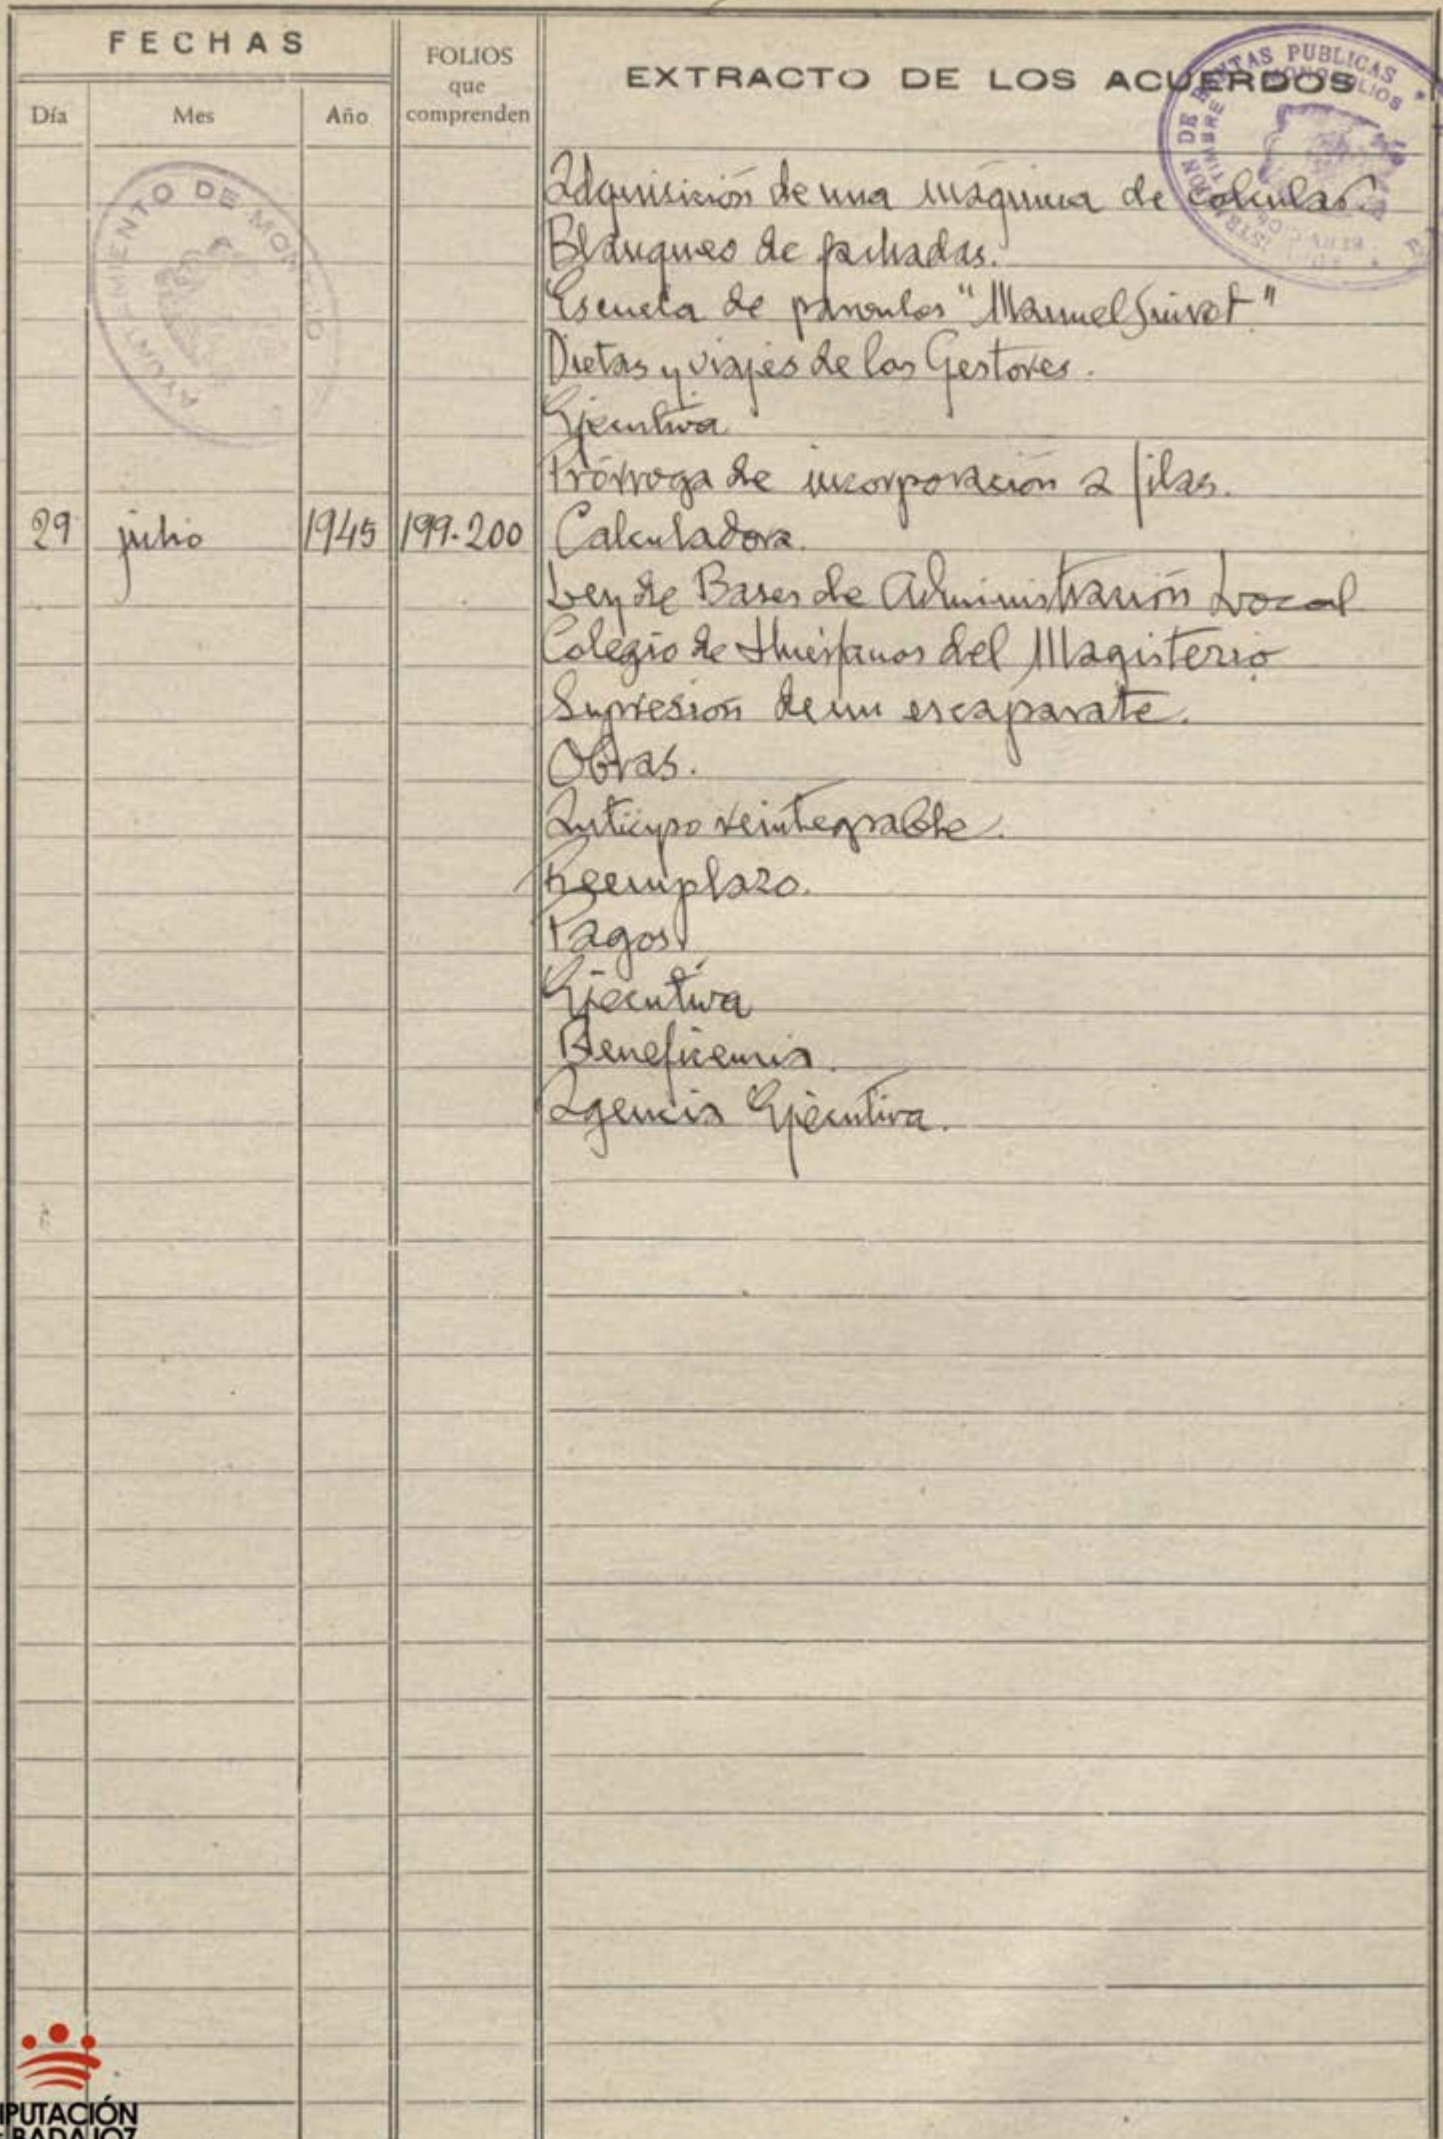 FECHAS
FOLIOS
que
comprenden
EXTRACTO DE LOS ACUERDOS
Día Mes Año
AYUNTAMIENTO DE MONTIJO
RENTAS PUBLICAS
MONOPOLIOS
TIMBRE
Adquisición de una máquina de calcular.
Blanqueo de fachadas.
Escuela de párvulos "Manuel
Dietas y viajes de los Gestores.
Ejecutiva
Prórroga de incorporación a filas.
29 julio 1945 199-200 Calculadora.
Ley de Bases de Administración Local
Colegio de Huérfanos del Magisterio
Supresión de un escaparate.
Obras.
Anticipo reintegrable.
Reemplazo.
Pagos.
Ejecutiva
Beneficencia.
Agencia Ejecutiva.
DIPUTACIÓN
DE BADAJOZ